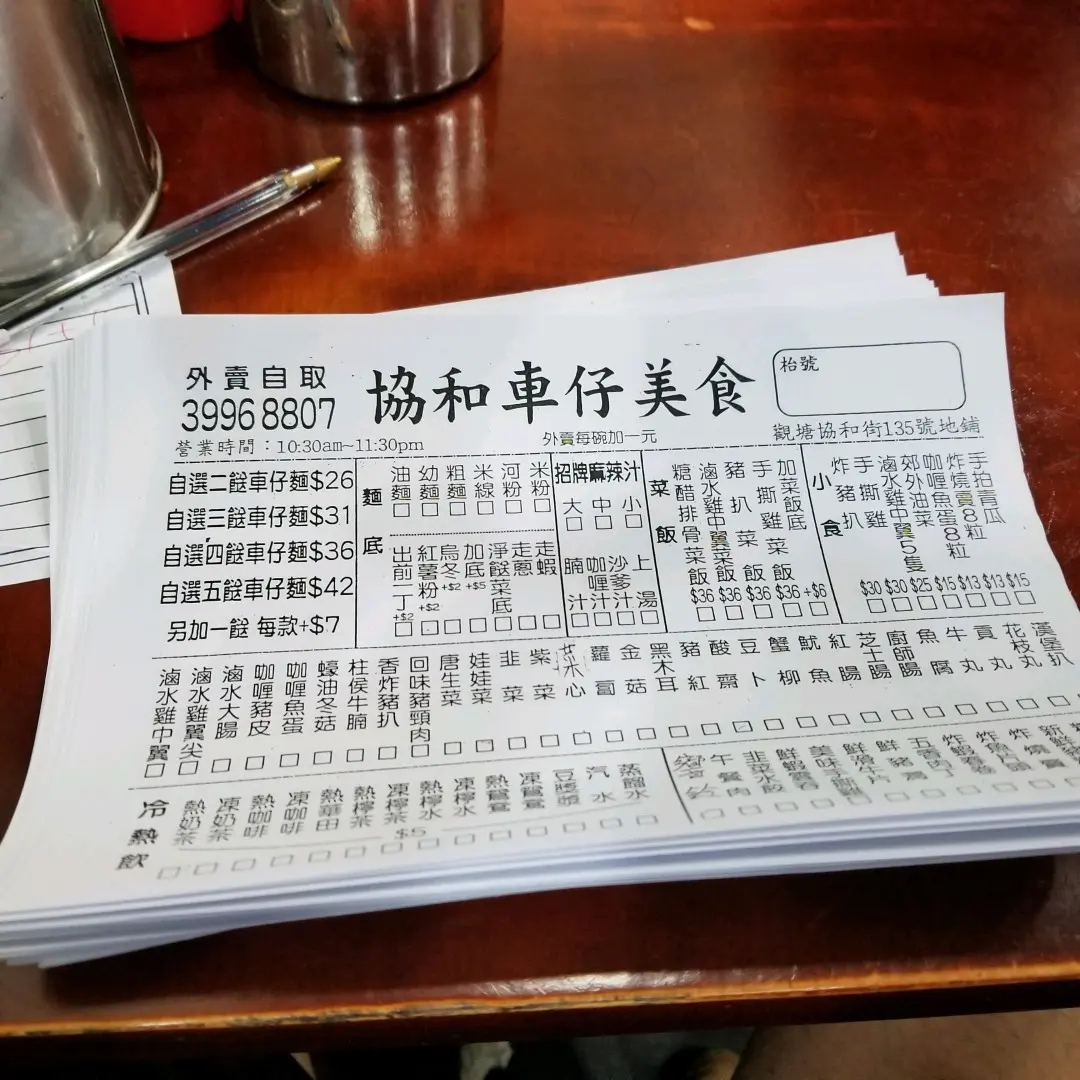 外賣自取
3996 8807
協和車仔美食
枱號
營業時間：10:30am-11:30pm
外賣每碗加一元
觀塘協和街135號地鋪
自選二餸車仔麵$26
自選三餸車仔麵$31
自選四餸車仔麵$36
自選五餸車仔麵$42
另加一餸 每款+$7
麵底
油麵
幼麵
粗麵
米線
河粉
米粉
出前一丁+$2
紅薯粉+$2
烏冬+$2
加底+$5
淨餸菜底
走蔥
走蝦
招牌麻辣汁
大
中
小
腩汁
咖喱汁
沙爹汁
上湯
菜飯
糖醋排骨菜飯$36
滷水雞中翼菜飯$36
豬扒菜飯$36
手撕雞菜飯$36
加菜飯底+$6
小食
炸豬扒$30
手撕雞$30
滷水雞中翼5隻$25
郊外油菜$15
咖喱魚蛋8粒$13
炸燒賣8粒$13
手拍青瓜$15
滷水雞中翼
滷水雞翼尖
滷水大腸
咖喱豬皮
咖喱魚蛋
蠔油冬菇
柱侯牛腩
香炸豬扒
回味豬頸肉
唐生菜
娃娃菜
韭菜
紫菜
蘿蔔
金菇
黑木耳
豬紅
酸齋
豆卜
蟹柳
魷魚
紅腸
芝士腸
廚師腸
魚腐
牛丸
貢丸
花枝丸
漢堡扒
冷熱飲
熱奶茶
凍奶茶
熱咖啡
凍咖啡
熱華田
熱檸茶
凍檸茶
熱檸水
凍檸水
熱鴛鴦
凍鴛鴦
豆漿
汽水
蒸餾水
$5
午餐肉
韭菜水餃
鮮蝦雲吞